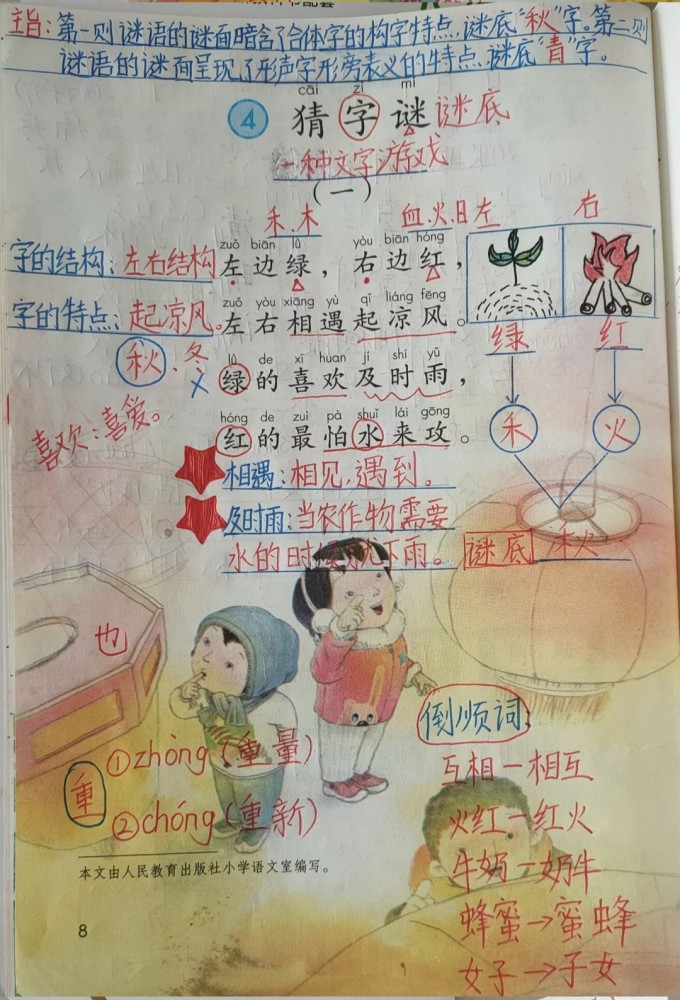 主旨：第一则谜语的谜面暗含了合体字的构字特点，谜底"秋"字。第二则
谜语的谜面呈现了形声字形旁表义的特点，谜底"青"字。
cāi zì mí
4 猜字谜 谜底
一种文字游戏
（一）
禾、木 血、火、日 左 右
字的结构：左右结构
zuǒ biān lǜ yòu biān hóng
左边绿，右边红，
字的特点：起凉风。
zuǒ yòu xiāng yù qǐ liáng fēng
左右相遇起凉风。
绿 红
秋、冬
lǜ de xǐ huan jí shí yǔ
绿的喜欢及时雨，
喜欢：喜爱。
hóng de zuì pà shuǐ lái gōng
红的最怕水来攻。
禾 火
相遇：相见，遇到。
及时雨：当农作物需要
水的时候就下雨。
谜底 秋
也
重
①zhòng（重量）
②chóng（重新）
倒顺词：
互相—相互
火红—红火
牛奶—奶牛
蜂蜜→蜜蜂
女子→子女
本文由人民教育出版社小学语文室编写。
8